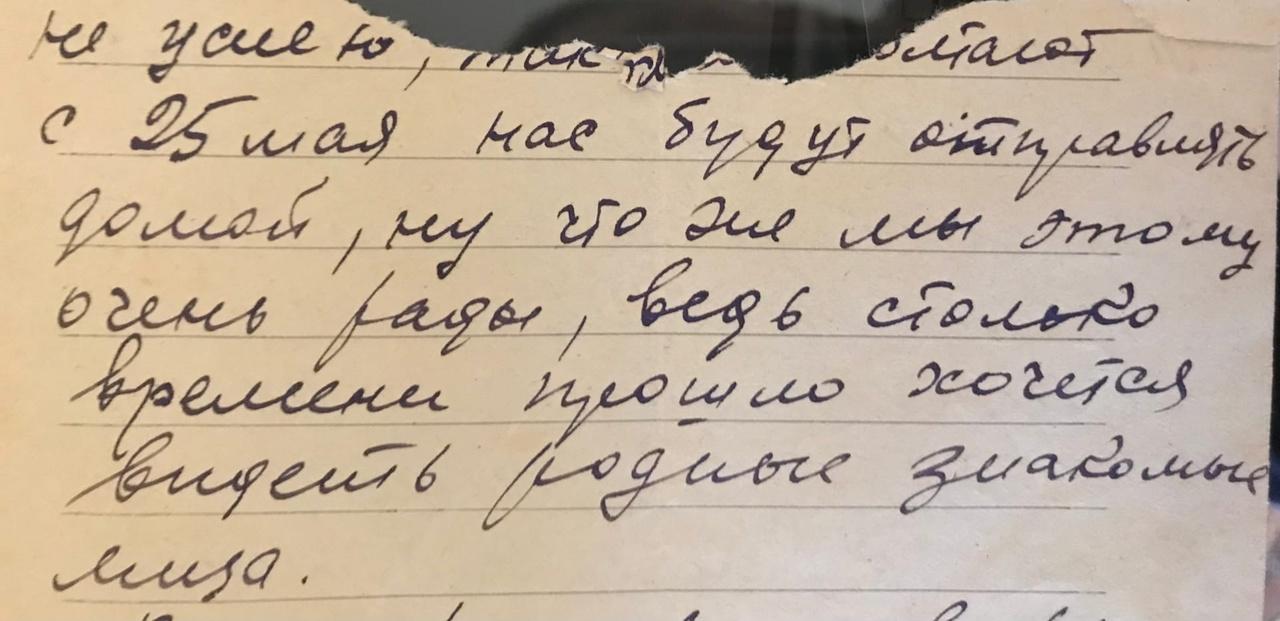 не успею, так
с 25 мая нас будут отправлять
домой, ну что же мы этому
очень рады, ведь столько
времени прошло хочется
видеть родные знакомые
лица.